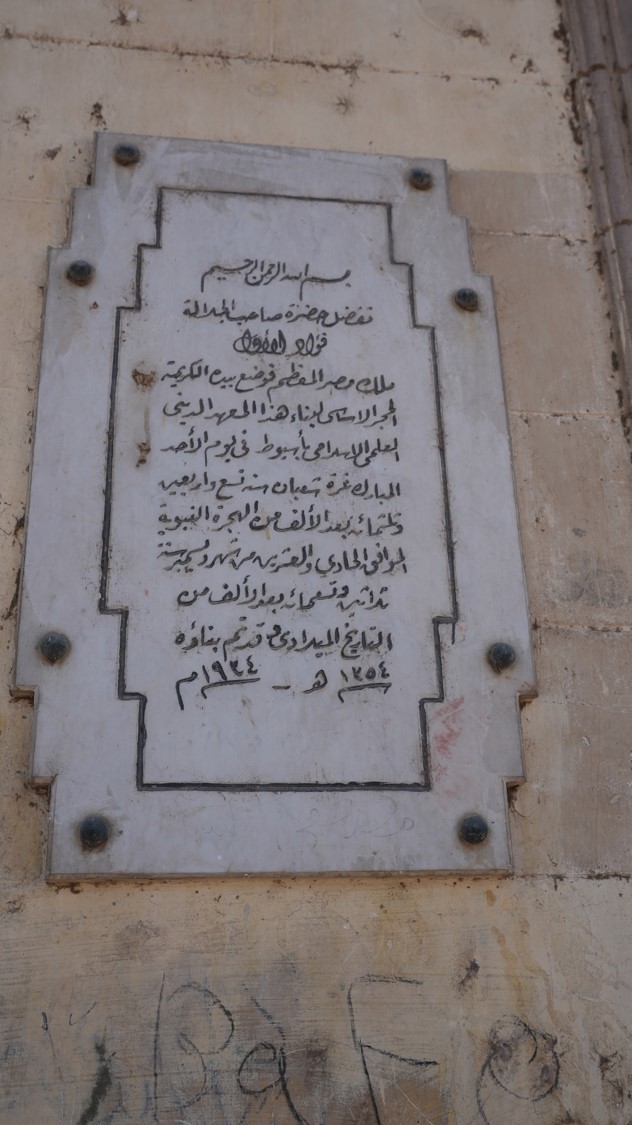 بسم الله الرحمن الرحيم
تفضل حضرة صاحب الجلالة
فؤاد الأول
ملك مصر المعظم فوضع بيده الكريمة
الحجر الاساسى لبناء هذا المعهد الدينى
العلمى الاسلامى بأسيوط فى يوم الأحد
المبارك غرة شعبان سنة تسع واربعين
وثلثمائه بعد الألف من الهجرة النبوية
الموافق الحادى والعشرين من شهر ديسمبر سنة
ثلاثين وتسعمائه بعد الألف من
التاريخ الميلادى وقد تم بناؤه
١٣٥٤ هـ - ١٩٣٤ م